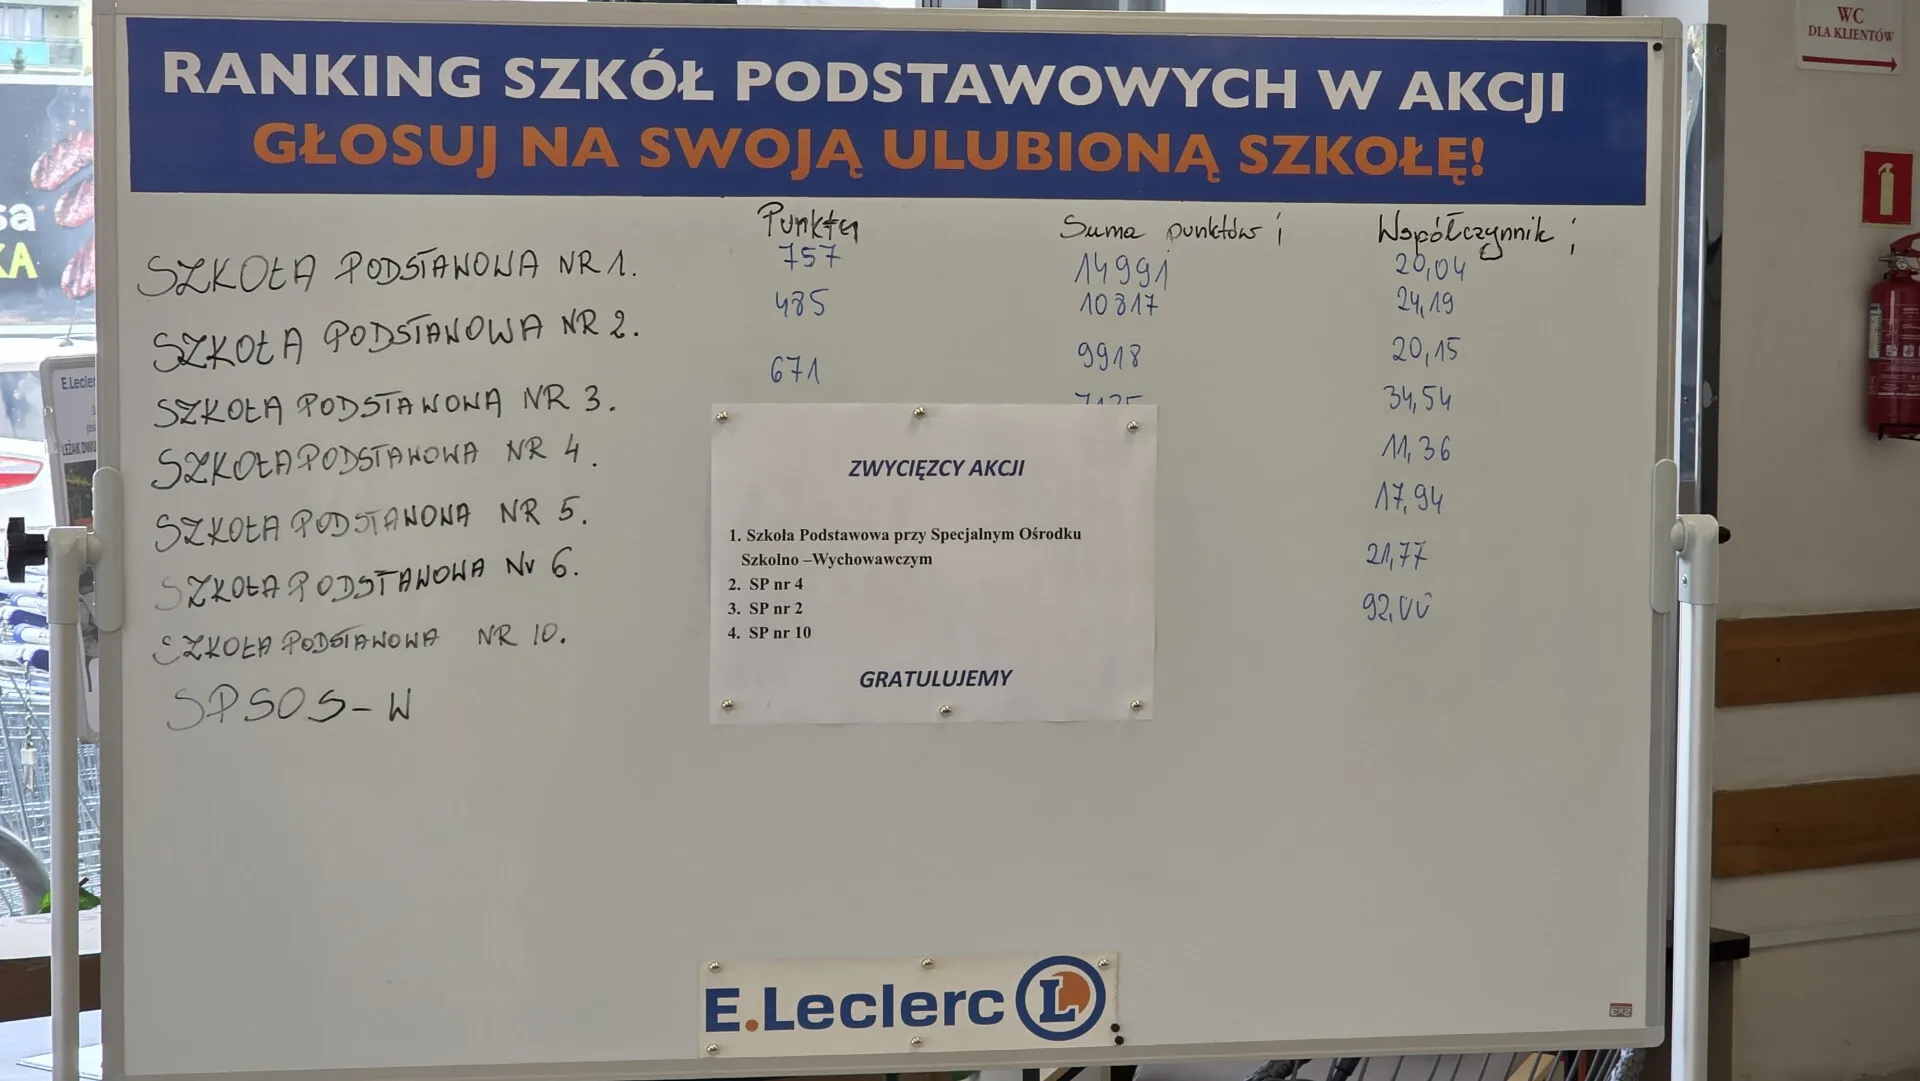 WC
DLA KLIENTÓW
RANKING SZKÓŁ PODSTAWOWYCH W AKCJI
GŁOSUJ NA SWOJĄ ULUBIONĄ SZKOŁĘ!
Punkty Suma punktów; Współczynnik;
SZKOŁA PODSTAWOWA NR 1. 757 14991 20,04
SZKOŁA PODSTAWOWA NR 2. 485 10817 24,19
SZKOŁA PODSTAWOWA NR 3. 671 9918 20,15
SZKOŁA PODSTAWOWA NR 4. 34,54
SZKOŁA PODSTAWOWA NR 5. 11,36
SZKOŁA PODSTAWOWA Nr 6. 17,94
SZKOŁA PODSTAWOWA NR 10. 21,77
SPSOS-W 92,00
ZWYCIĘZCY AKCJI
1. Szkoła Podstawowa przy Specjalnym Ośrodku
Szkolno –Wychowawczym
2. SP nr 4
3. SP nr 2
4. SP nr 10
GRATULUJEMY
E.Leclerc L
E.Lecler